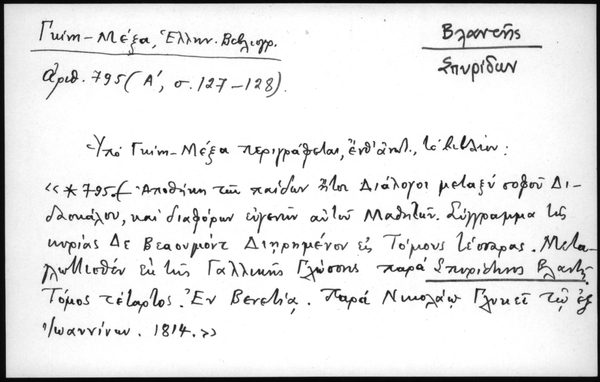 Γκίνη-Μέξα, Ἑλλην. Βιβλιογρ.
ἀριθ. 795 (Α', σ. 127-128).
Βλαντῆς
Σπυρίδων
Ὑπό Γκίνη-Μέξα περιγράφεται, ἐνθ' ἀνωτ., τό βιβλίον:
«*795.- Ἀποθήκη τῶν παίδων ἤτοι Διάλογοι μεταξύ σοφοῦ Δι-
δασκάλου, καί διαφόρων εὐγενῶν αὐτοῦ Μαθητῶν. Σύγγραμμα τῆς
κυρίας Δε Βεαουμόντ Διῃρημένον εἰς Τόμους τέσσαρας. Μετα-
γλωττισθέν ἐκ τῆς Γαλλικῆς Γλώσσης παρά Σπυρίδωνος Βλαντῆ.
Τόμος τέταρτος. Ἐν Βενετίᾳ. Παρά Νικολάῳ Γλυκεῖ τῷ ἐξ
Ἰωαννίνων. 1814.»